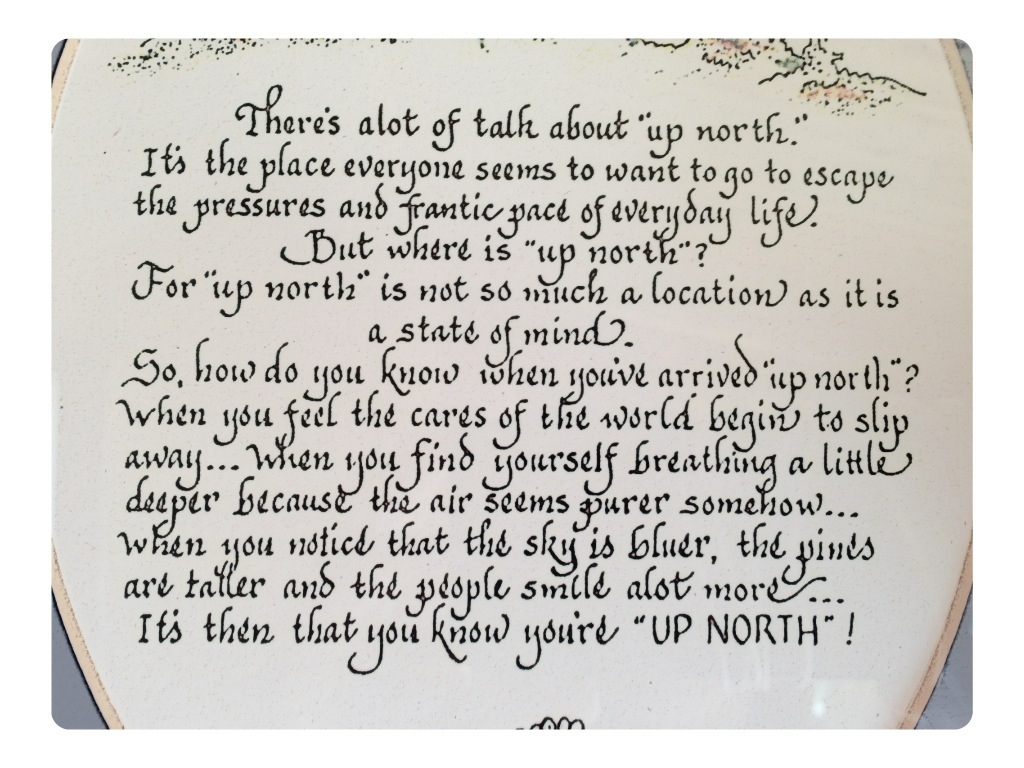 There's alot of talk about "up north."
It's the place everyone seems to want to go to escape
the pressures and frantic pace of everyday life.
But where is "up north"?
For "up north" is not so much a location as it is
a state of mind.
So, how do you know when you've arrived "up north"?
When you feel the cares of the world begin to slip
away... When you find yourself breathing a little
deeper because the air seems purer somehow...
when you notice that the sky is bluer, the pines
are taller and the people smile alot more...
It's then that you know you're "UP NORTH"!